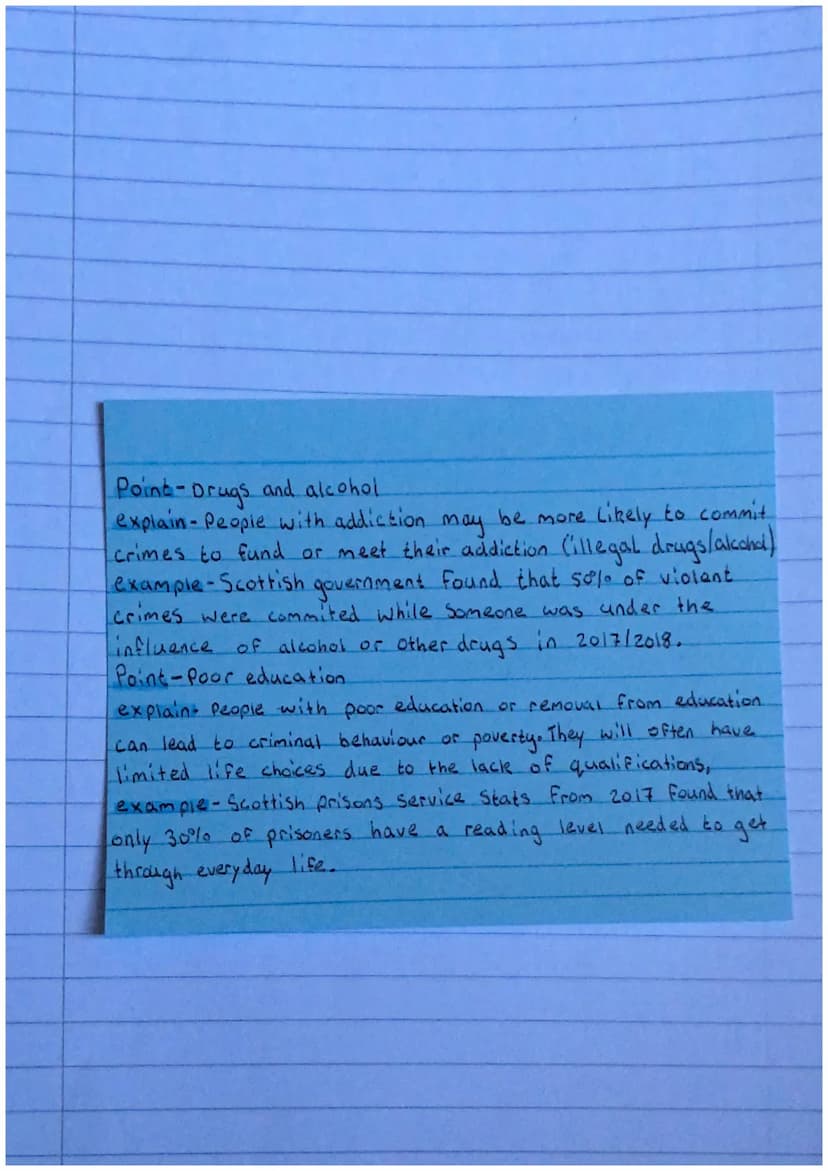 Point-Drugs and alcohol
explain- People with addiction may be more likely to commit
crimes to fund or meet their addiction (illegal drugs/alcohol)
example-Scottish government found that 50% of violent
crimes were commited while someone was under the
influence of alcohol or other drugs in 2017/2018.
Point-Poor education
explain- People with poor education or removal from education
can lead to criminal behaviour or poverty. They will often have
limited life choices due to the lack of qualifications,
example- Scottish prisons service stats from 2017 found that
only 30% of prisoners have a reading level needed to get
through everyday life.